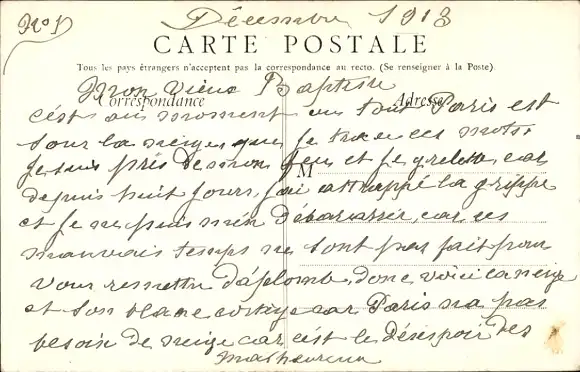 No 1
Décembre 1913
CARTE POSTALE
Tous les pays étrangers n'acceptent pas la correspondance au recto. (Se renseigner à la Poste).
Mon vieux Baptiste
Correspondance Adresse
c'est au moment ou tout Paris est
sour la neige que je trace ces mots.
Je suis près de mon feu et je grelotte car
M
depuis huit jours, j'ai attrappé la grippe
et je ne puis m'en débarrasser, car ces
mauvais temps ne sont pas fait pour
vous remettre d'aplomb, donc voici la neige
et son blanc cortège car Paris n'a pas
besoin de neige car c'est le désespoir des
malheureux